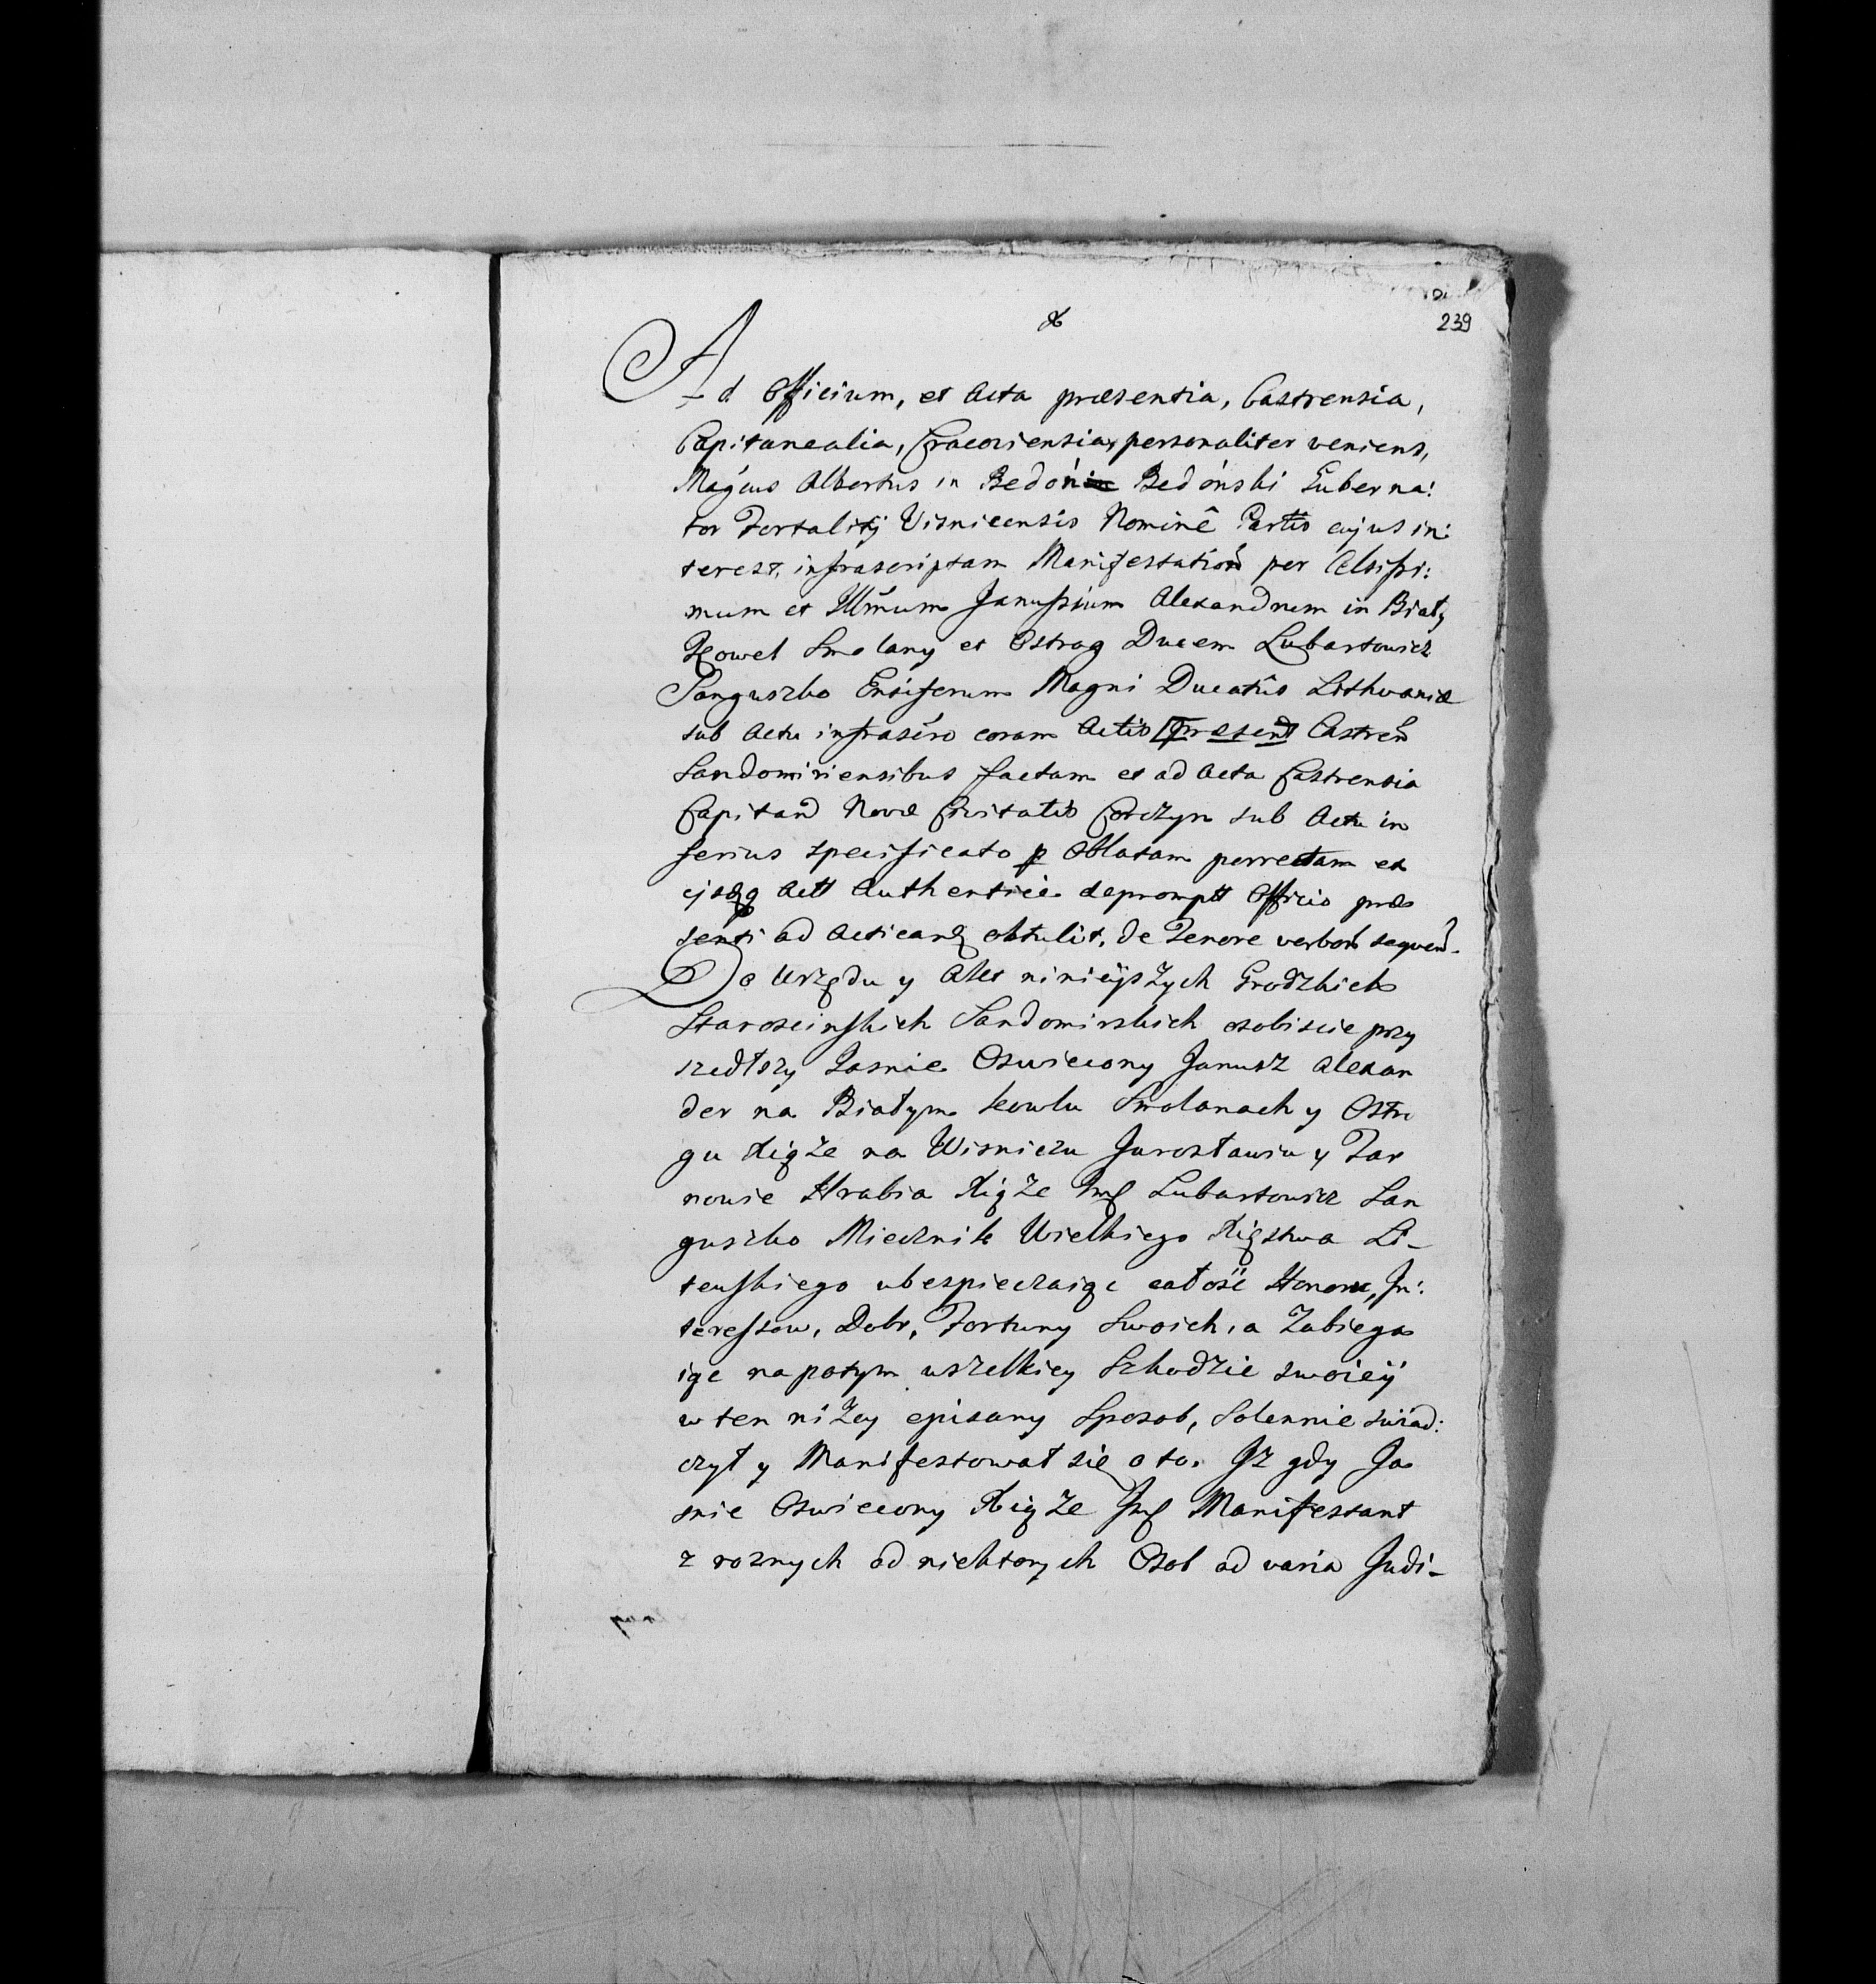 239
Ad Officium, et Acta præsentia, Castrensia,
Capitanealia, Cracoviensia, personaliter veniens,
Magcus Albertus in Bedón Bedónski Guberna:
tor Fortalitij Visnicensis Nominê Partis cujus in:
terest, infrascriptam Manifestationẽ per Celsissi:
mum et Illmum Janussium Alexandrum in Biały
Kowel Smolany et Ostrog Ducem Lubartowicz
Sanguszko Ensiferum Magni Ducatûs Lithvaniæ
sub Actu infrascro coram Actis præsent Castren
Sandomiriensibus factam et ad Acta Castrensia
Capitan Novæ Civitatis Corczyn sub Actu in
ferius specificato p Oblatam porrectam ex
ejsdq Actt Authentice deprompt Officio præ
senti ad Acticand obtulit, de Tenore verbor sequen.
Do Urzędu y Akt ninieyszych Grodzkich
Staroscinskich Sandomirskich osobiscie przy
szedłszy Jasnie Oswiecony Janusz Alexan
der na Białym Kowlu Smolanach y Ostro
gu Xiąże na Wisniczu Jarosławiu y Tar
nowie Hrabia Xiąże Jmć Lubartowicz San
guszko Miecznik Wielkiego Xięstwa Li-
tewskiego ubespieczaiąc całość Honoru, In:
teressow, Dobr, Fortuny Swoich, a Zabiega
iąc napotym wszelkiey Szkodzie swoiey
w ten niżey opisany Sposob, Solennie swiad:
czył y Manifestował się o to. Jż gdy Ja
snie Oswiecony Xiąże Jmć Manifestant
z roznych od niektorych Osob ad varia Judi-